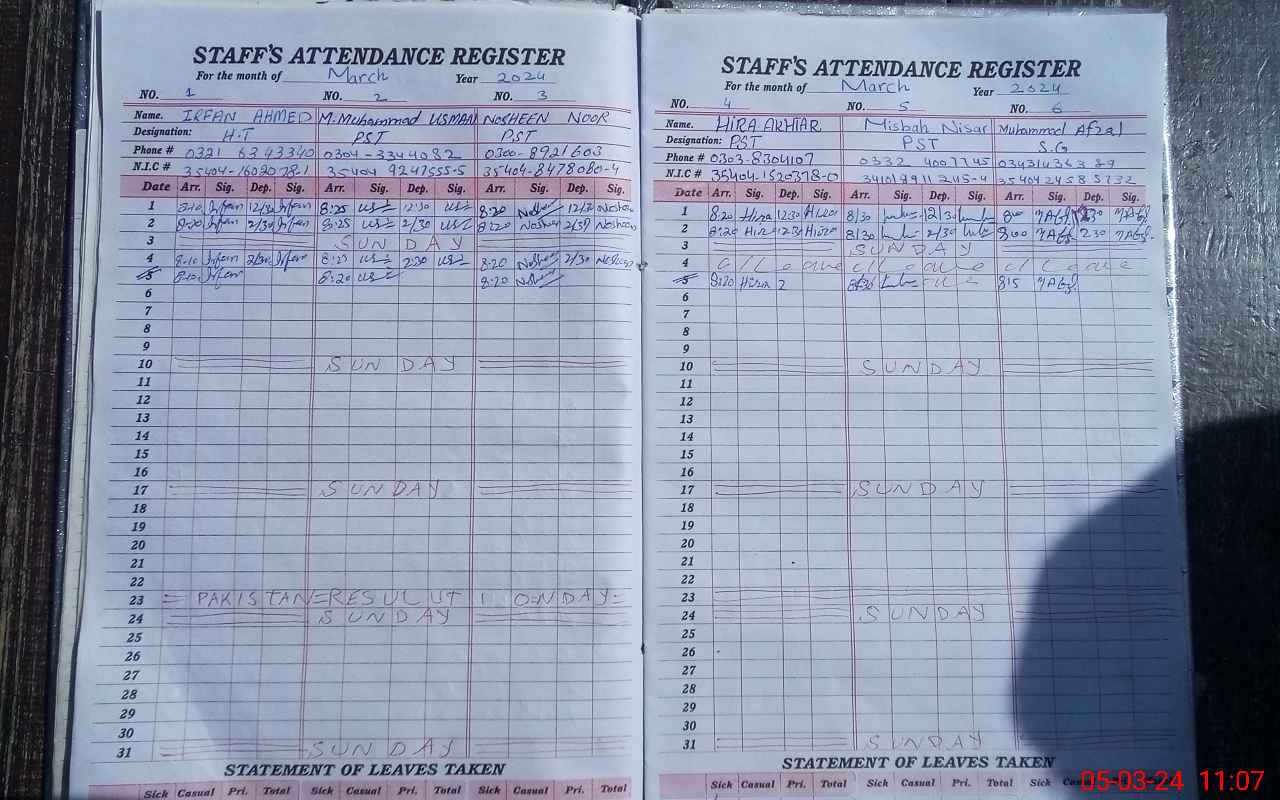 STAFF'S ATTENDANCE REGISTER
For the month of March Year 2024
NO. 1 NO. 2 NO. 3
Name. IRFAN AHMED M. Muhammad USMAN NOSHEEN NOOR
Designation: H.T PST P.ST
Phone # 0321 6343340 0304-3344082 0300-8921603
N.I.C # 35404-1602078-1 35404 9247555-5 35404-8478080-4
Date Arr. Sig. Dep. Sig. Arr. Sig. Dep. Sig. Arr. Sig. Dep. Sig.
1 8-10 Irfan 12/30 Irfan 8:25 12:30 8:20 Noshen 12/30 Nosheen
2 8-20 Irfan 2/30 Irfan 8:25 2/30 8:20 Nosheen 2/30 Nosheen
3 SUNDAY
4 8-10 Irfan 2/30 Irfan 8:25 2:30 8:20 Nosheen 2/30 Nosheen
5 8:10 Irfan 8:20 8:20 Nosheen
6
7
8
9
10 SUNDAY
11
12
13
14
15
16
17 SUNDAY
18
19
20
21
22
23 PAKISTAN=RESULUTION=DAY=
24 SUNDAY
25
26
27
28
29
30
31 SUNDAY
STATEMENT OF LEAVES TAKEN
Sick Casual Pri. Total Sick Casual Pri. Total Sick Casual Pri. Total
STAFF'S ATTENDANCE REGISTER
For the month of March Year 2024
NO. 4 NO. 5 NO. 6
Name. HIRA AKHTAR Misbah Nisar Muhammad Afzal
Designation: PST PST S.G
Phone # 0303-8304107 0332 4007745 03431436389
N.I.C # 35404-1520378-0 34101 9911245-4 35404 2458 5732
Date Arr. Sig. Dep. Sig. Arr. Sig. Dep. Sig. Arr. Sig. Dep. Sig.
1 8:20 Hira 12:30 Hira 8/30 12/30 8:00 M Afzl 12:30 M Afzl
2 8:20 Hira 12:30 Hira 8/30 2/30 8:00 M Afzl 2:30 M Afzl
3 SUNDAY
4 c/Leave c/Leave c/Leave
5 8:20 Hira 2 8:30 8:15 M Afzl
6
7
8
9
10 SUNDAY
11
12
13
14
15
16
17 SUNDAY
18
19
20
21
22
23
24 SUNDAY
25
26
27
28
29
30
31 SUNDAY
STATEMENT OF LEAVES TAKEN
Sick Casual Pri. Total Sick Casual Pri. Total Sick
05-03-24 11:07